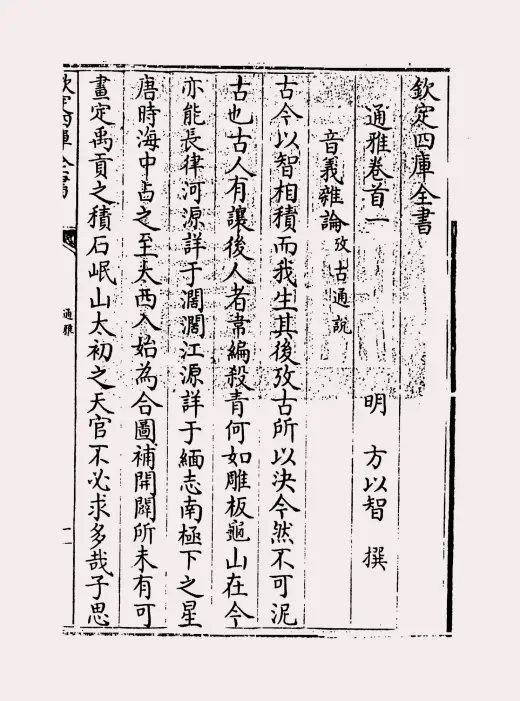 欽定四庫全書
通雅卷首一
明 方以智 撰
音義雜論 攷古通說
古今以智相積而我生其後攷古所以決今然不可泥
古也古人有讓後人者韋編殺青何如雕板龜山在今
亦能長律河源詳于濶濶江源詳于緬志南極下之星
唐時海中占之至大西入始為合圖補開闢所未有可
畫定禹貢之積石岷山太初之天官不必求多哉子思
欽定四庫全書
通雅
一